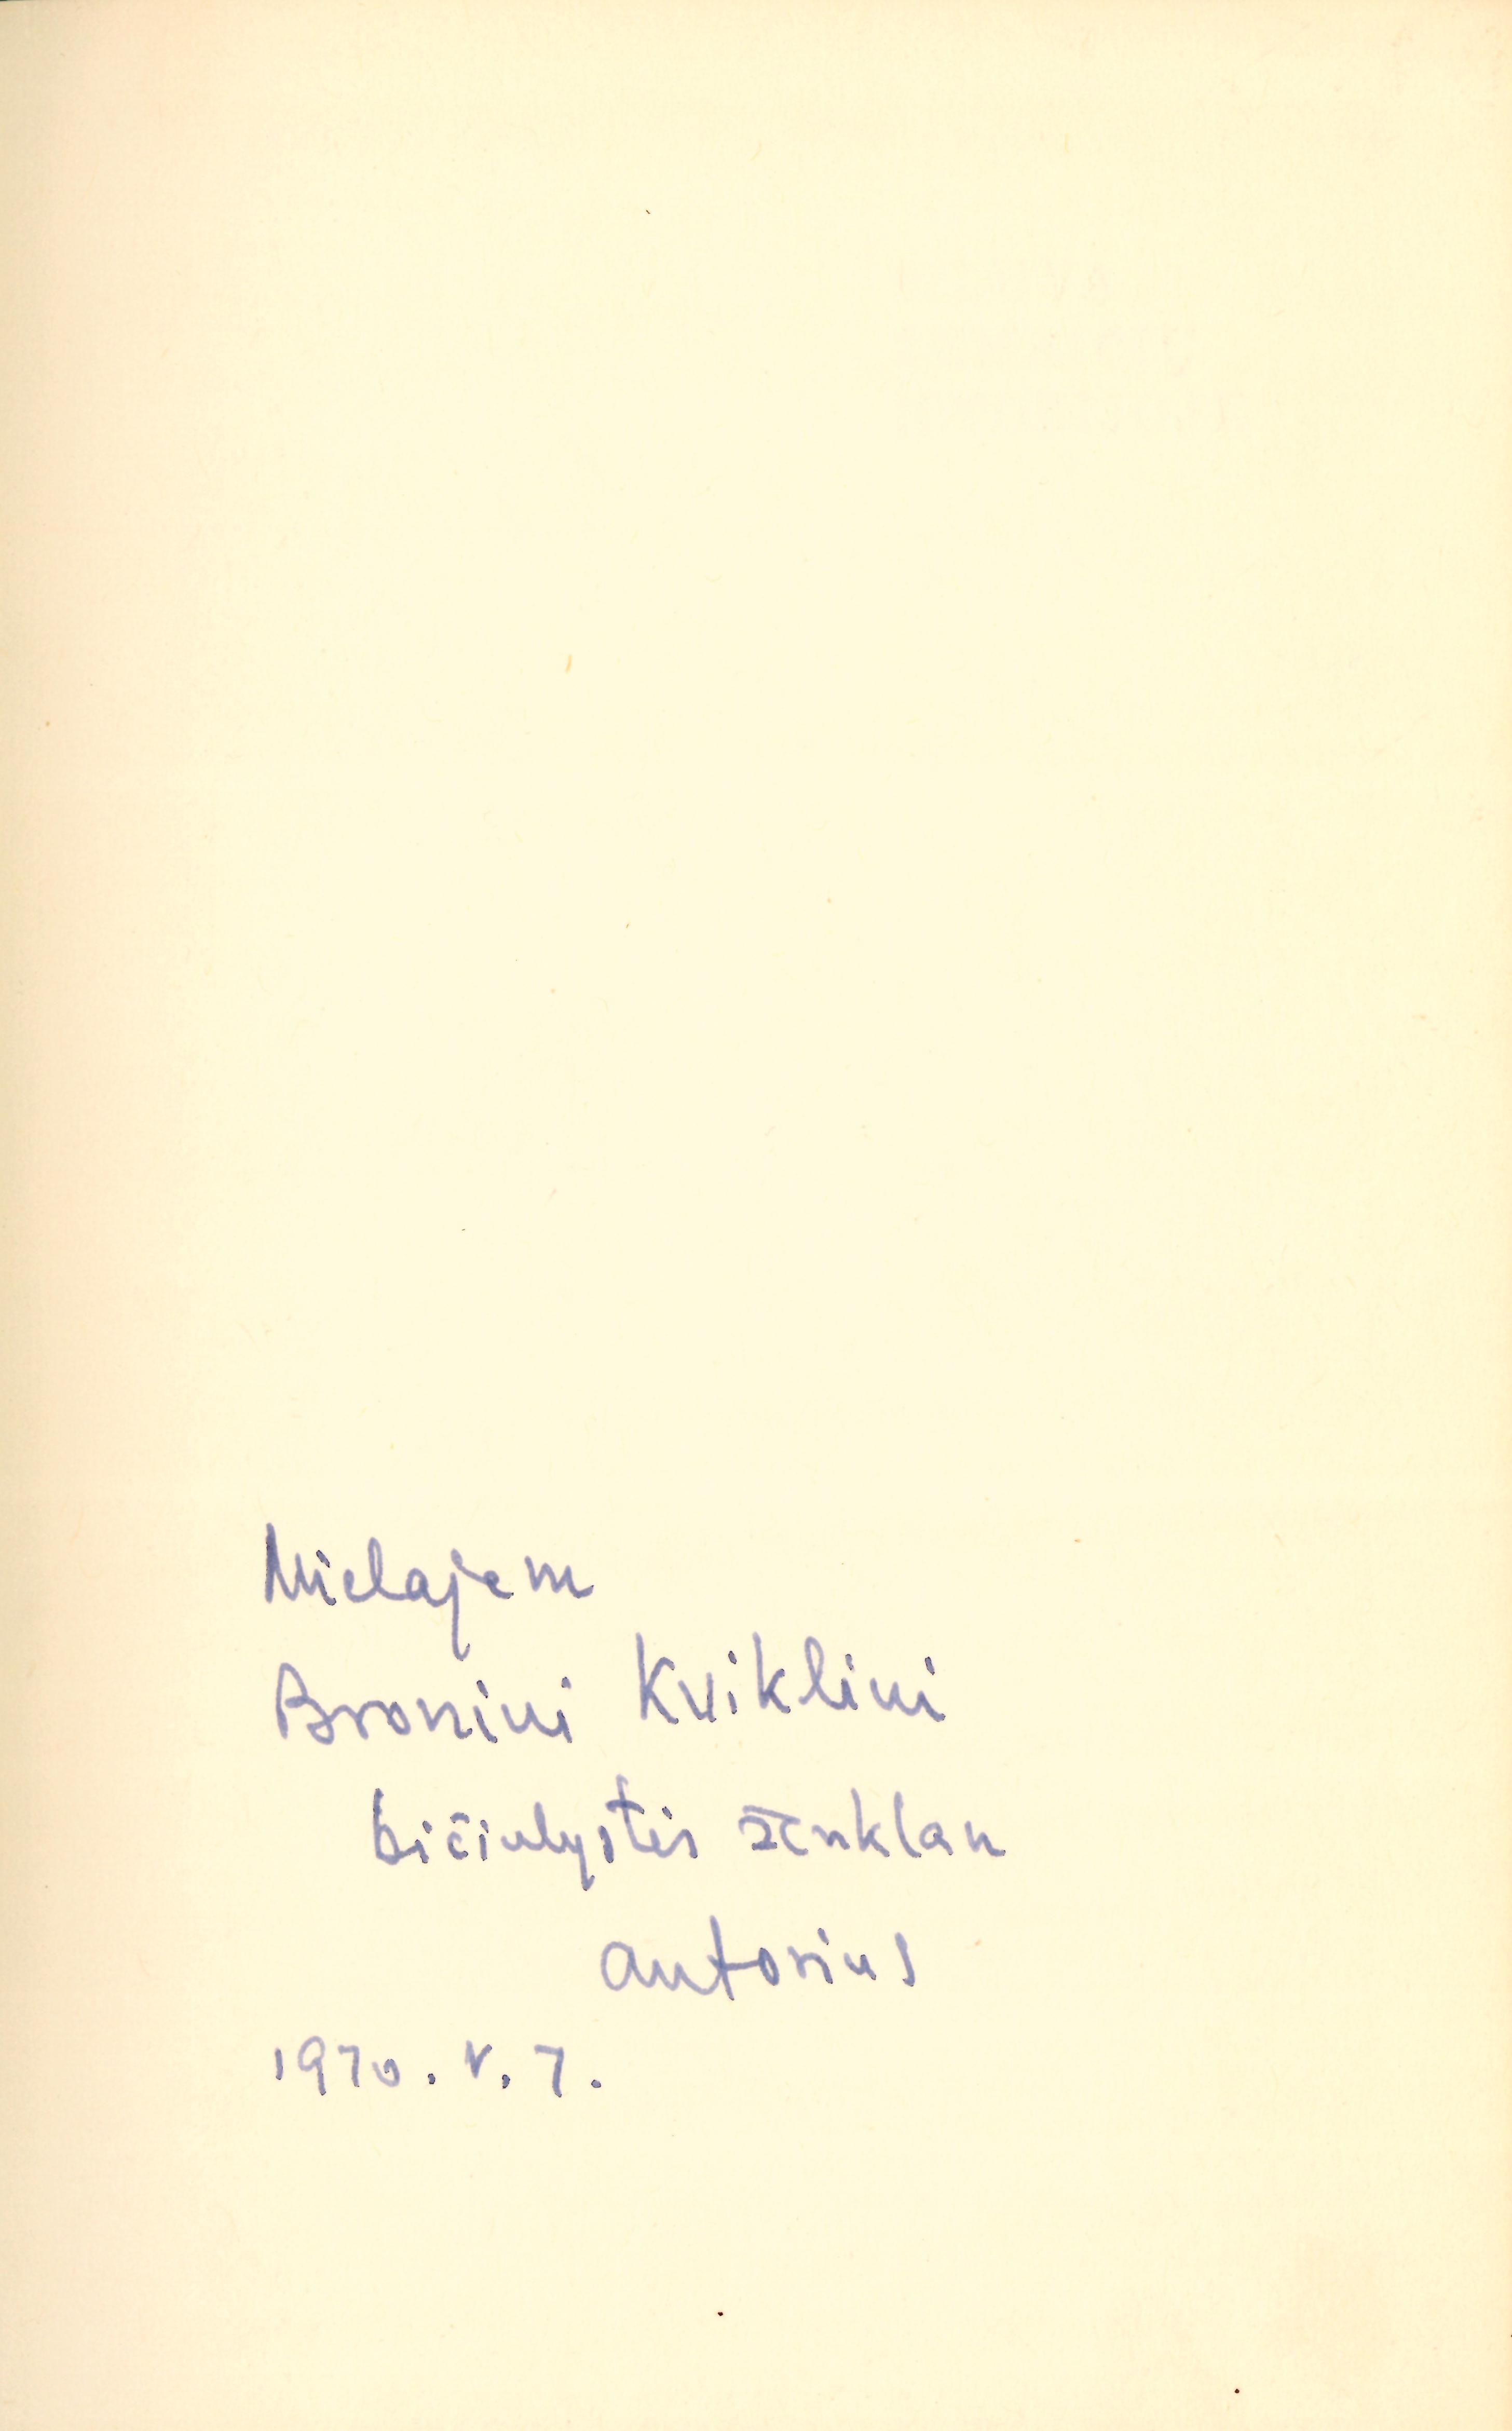 Mielajam
Broniui Kvikliui
bičiulystės ženklan
autorius
1970. V. 7.